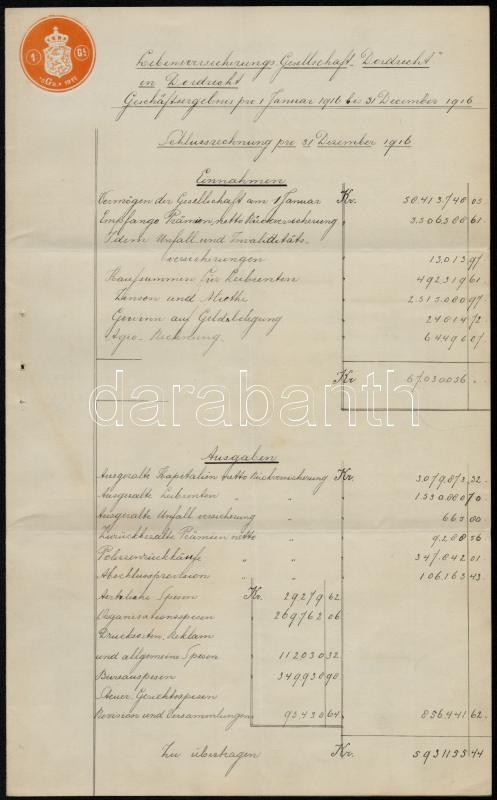 1 Gs
1917
Lebensversicherungs Gesellschaft "Dordrecht"
in Dordrecht
Geschäftsergebnis pro 1 Januar 1916 bis 31 December 1916
Schlussrechnung pro 31 Dezember 1916
Einnahmen
Vermögen der Gesellschaft am 1 Januar Kr. 58413748 03
Empfango Prämien, netto Rückversicherung 3506588 61
Idem Unfall und Invaliditäts-
versicherungen 13013 97
Kaufsummen für Leibrenten 492319 61
Zinsen und Miethe 2515000 97
Gewinn auf Geldbelegung 24814 72
Agio-Rechnung. 64490 07
Kr 67030036 ..
darabanth
Ausgaben
Ausgezalte Kapitalien netto Rückversicherung Kr. 3079873 32
Ausgezalte Leibrenten " " 1330880 70
Ausgezalte Unfall versicherung " 665 00
Zurückbezalte Prämien netto " 9288 56
Polizenrückkäufe " " 347842 01
Abschlussprovision " " 106163 43
Aerztliche Spesen Kr. 29279 62
Organisationsspesen 269762 06
Drucksorten, Reklam
und allgemeine Spesen 112030 32
Bureauspesen 349930 98
Steuer, Gerichtsspesen
Revision und Versammlungen 95430 64 856441 62
Zu übertragen Kr. 5931155 44